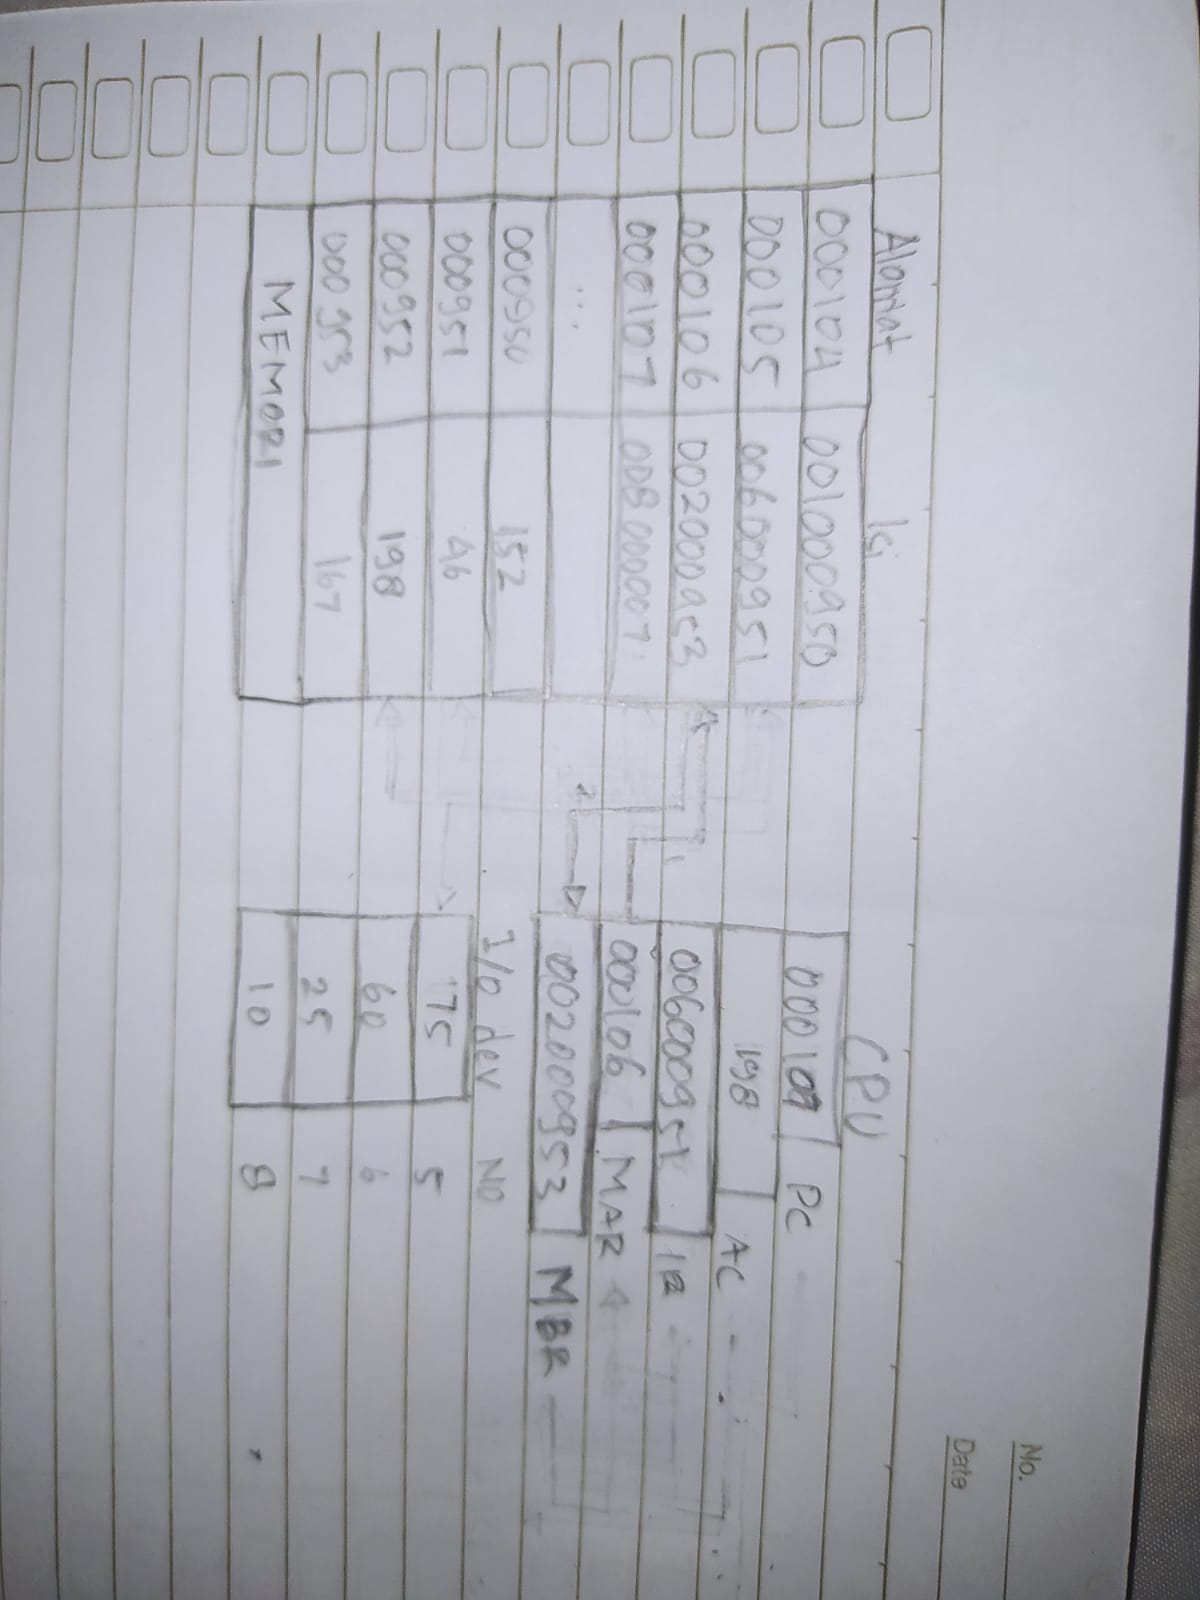 No.
Date
Alamat Isi CPU
000104 001000950
000105 006000951
000106 002000953
000107 008000007
...
000950 152
000951 46
000952 198
000953 167
MEMORI
PC
198 AC
IR
000106 MAR
002000953 MBR
1
2
I/O dev NO
175 5
60 6
25 7
10 8